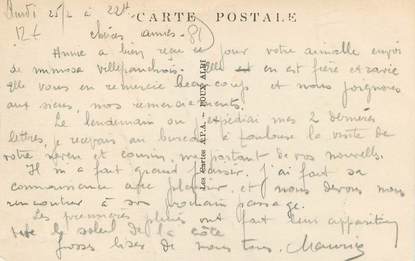 Lundi 25/2 à 22H
CARTE POSTALE
chères amies
Annie a bien reçu pour votre aimable envoi
de mimosa villefranchois. Elle en est fière et ravie
elle vous en remercie beaucoup et nous joignons
aux siens, nos remerciements.
Le lendemain où j'expédiai mes 2 dernières
lettres, je recevais au bureau à Toulouse la visite de
votre neveu et cousin, m'apportant de vos nouvelles.
Il m'a fait grand plaisir. J'ai fait sa
connaissance avec plaisir, et nous devons nous
rencontrer à son prochain passage.
Les premières pluies ont fait leur apparition
vive le soleil de la côte
Grosses bises de nous tous. Maurice
Les Cartes A.P.A. — POUX ALBI